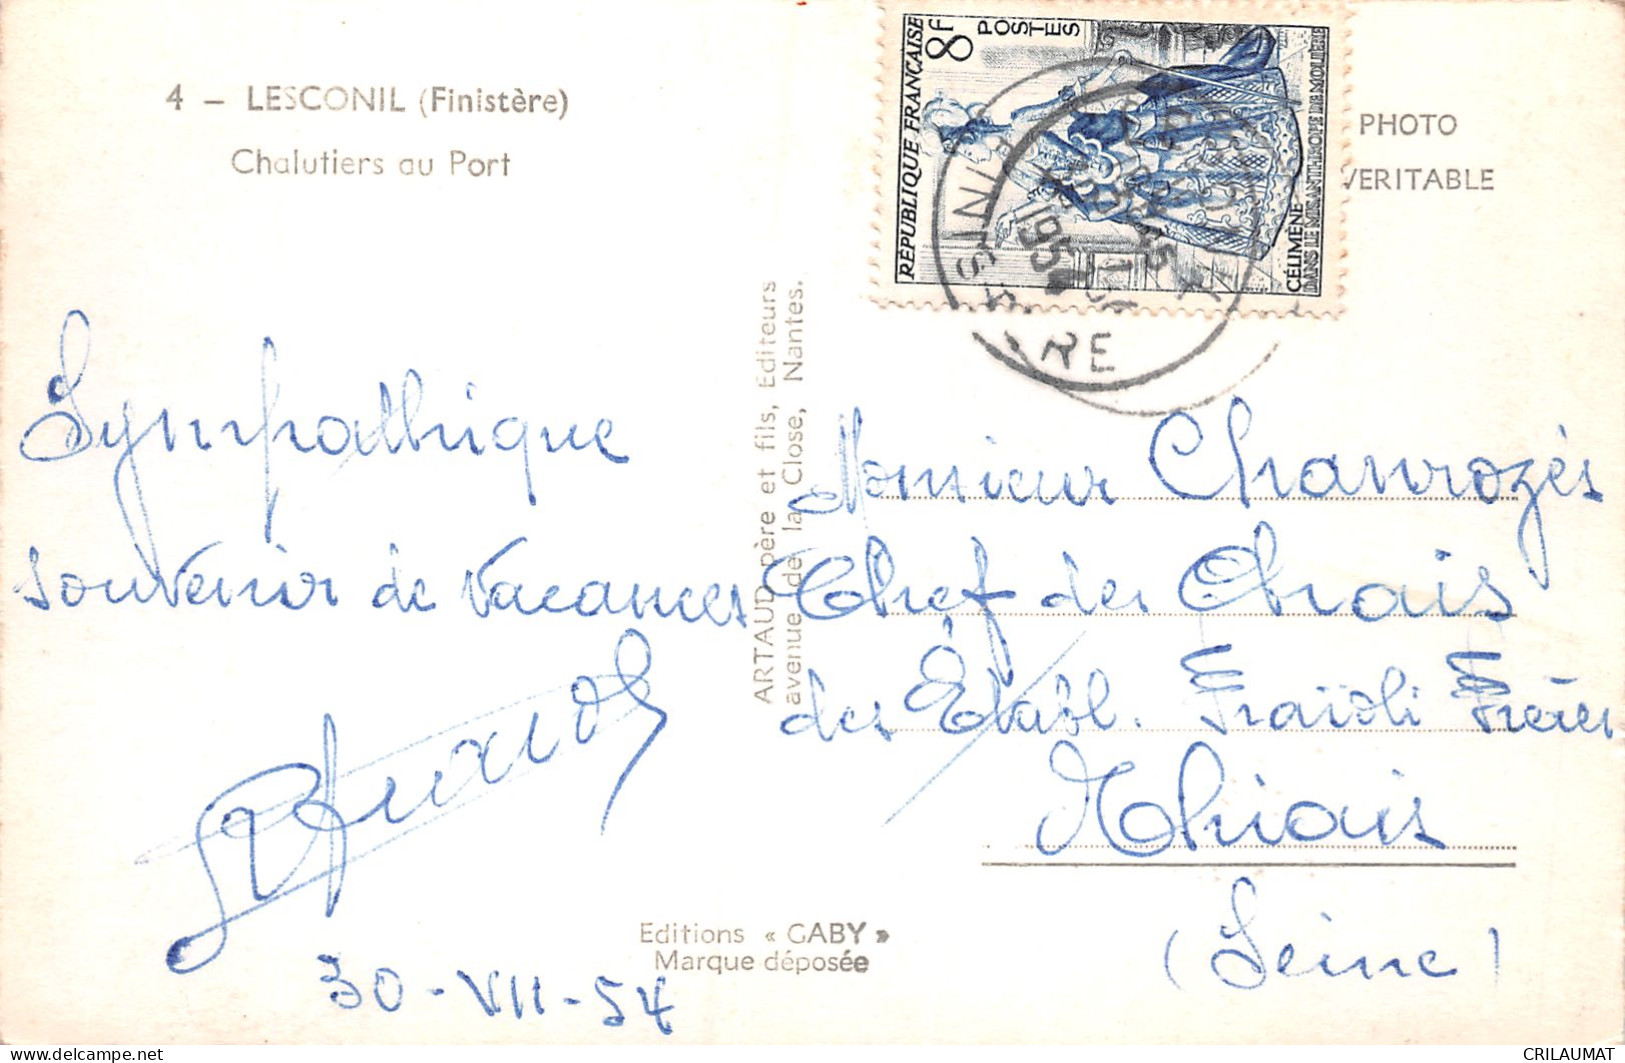 4 – LESCONIL (Finistère)
Chalutiers au Port
Sympathique
souvenir de vacances
30-VII-54
ARTAUD père et fils, Editeurs
avenue de la Close, Nantes.
Editions « GABY »
Marque déposée
RÉPUBLIQUE FRANÇAISE
8F
POSTES
CÉLIMÈNE
DANS LE MISANTHROPE DE MOLIÈRE
1954
FINISTÈRE
PHOTO
VERITABLE
Monsieur Chanrozès
Chef des Chais
des Établ. Fraïoli Frères
Thiais
(Seine)
© delcampe.net
CRILAUMAT